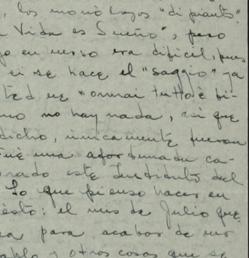 , los novio hayos "di pianto"
Vida es Sueño", pero
en verso era dificil, pues
si se hace el "saggio" ya
ted ve "ormai tutto è fi-
mo no hay nada, sin que
dicho, unicamente fueron
Fué una afortunada ca-
este
Lo que pienso hacer en
ésto: el mes de Julio que
ra para acabar de ver
y otras cosas que se